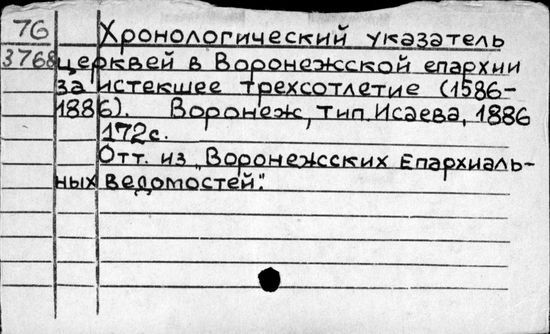 76
3768
Хронологический указатель
церквей в Воронежской епархии
за истекшее трехсотлетие (1586-
1886). Воронеж, тип. Исаева, 1886
172с.
Отт. из „Воронежских Епархиаль-
ных ведомостей".